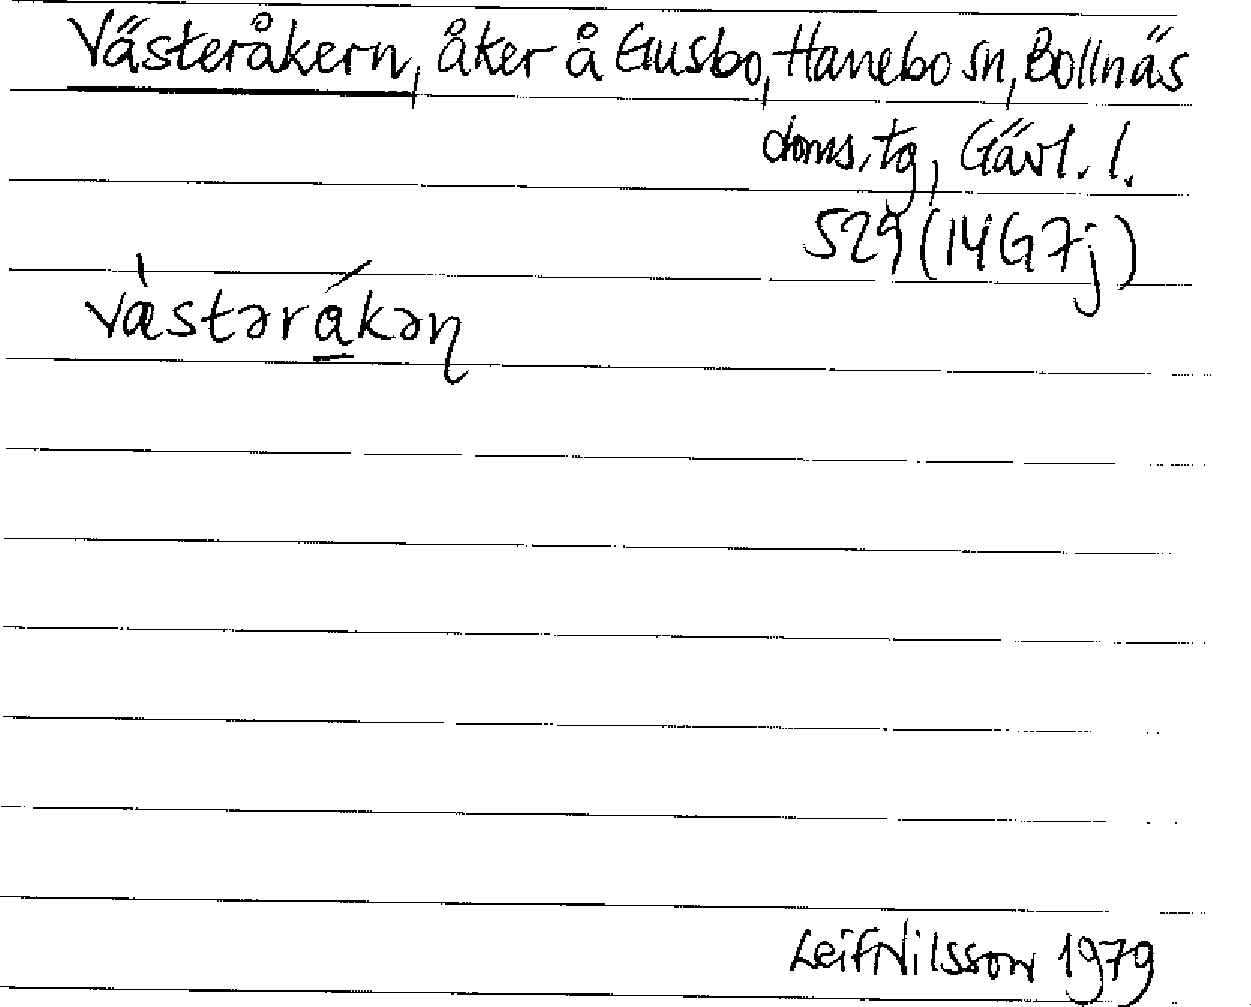 Västeråkern, åker å Gusbo, Hanebo sn, Bollnäs
doms.tg, Gävl. l.
529 (14G7j)
vàstərákəɳ
Leif Nilsson 1979